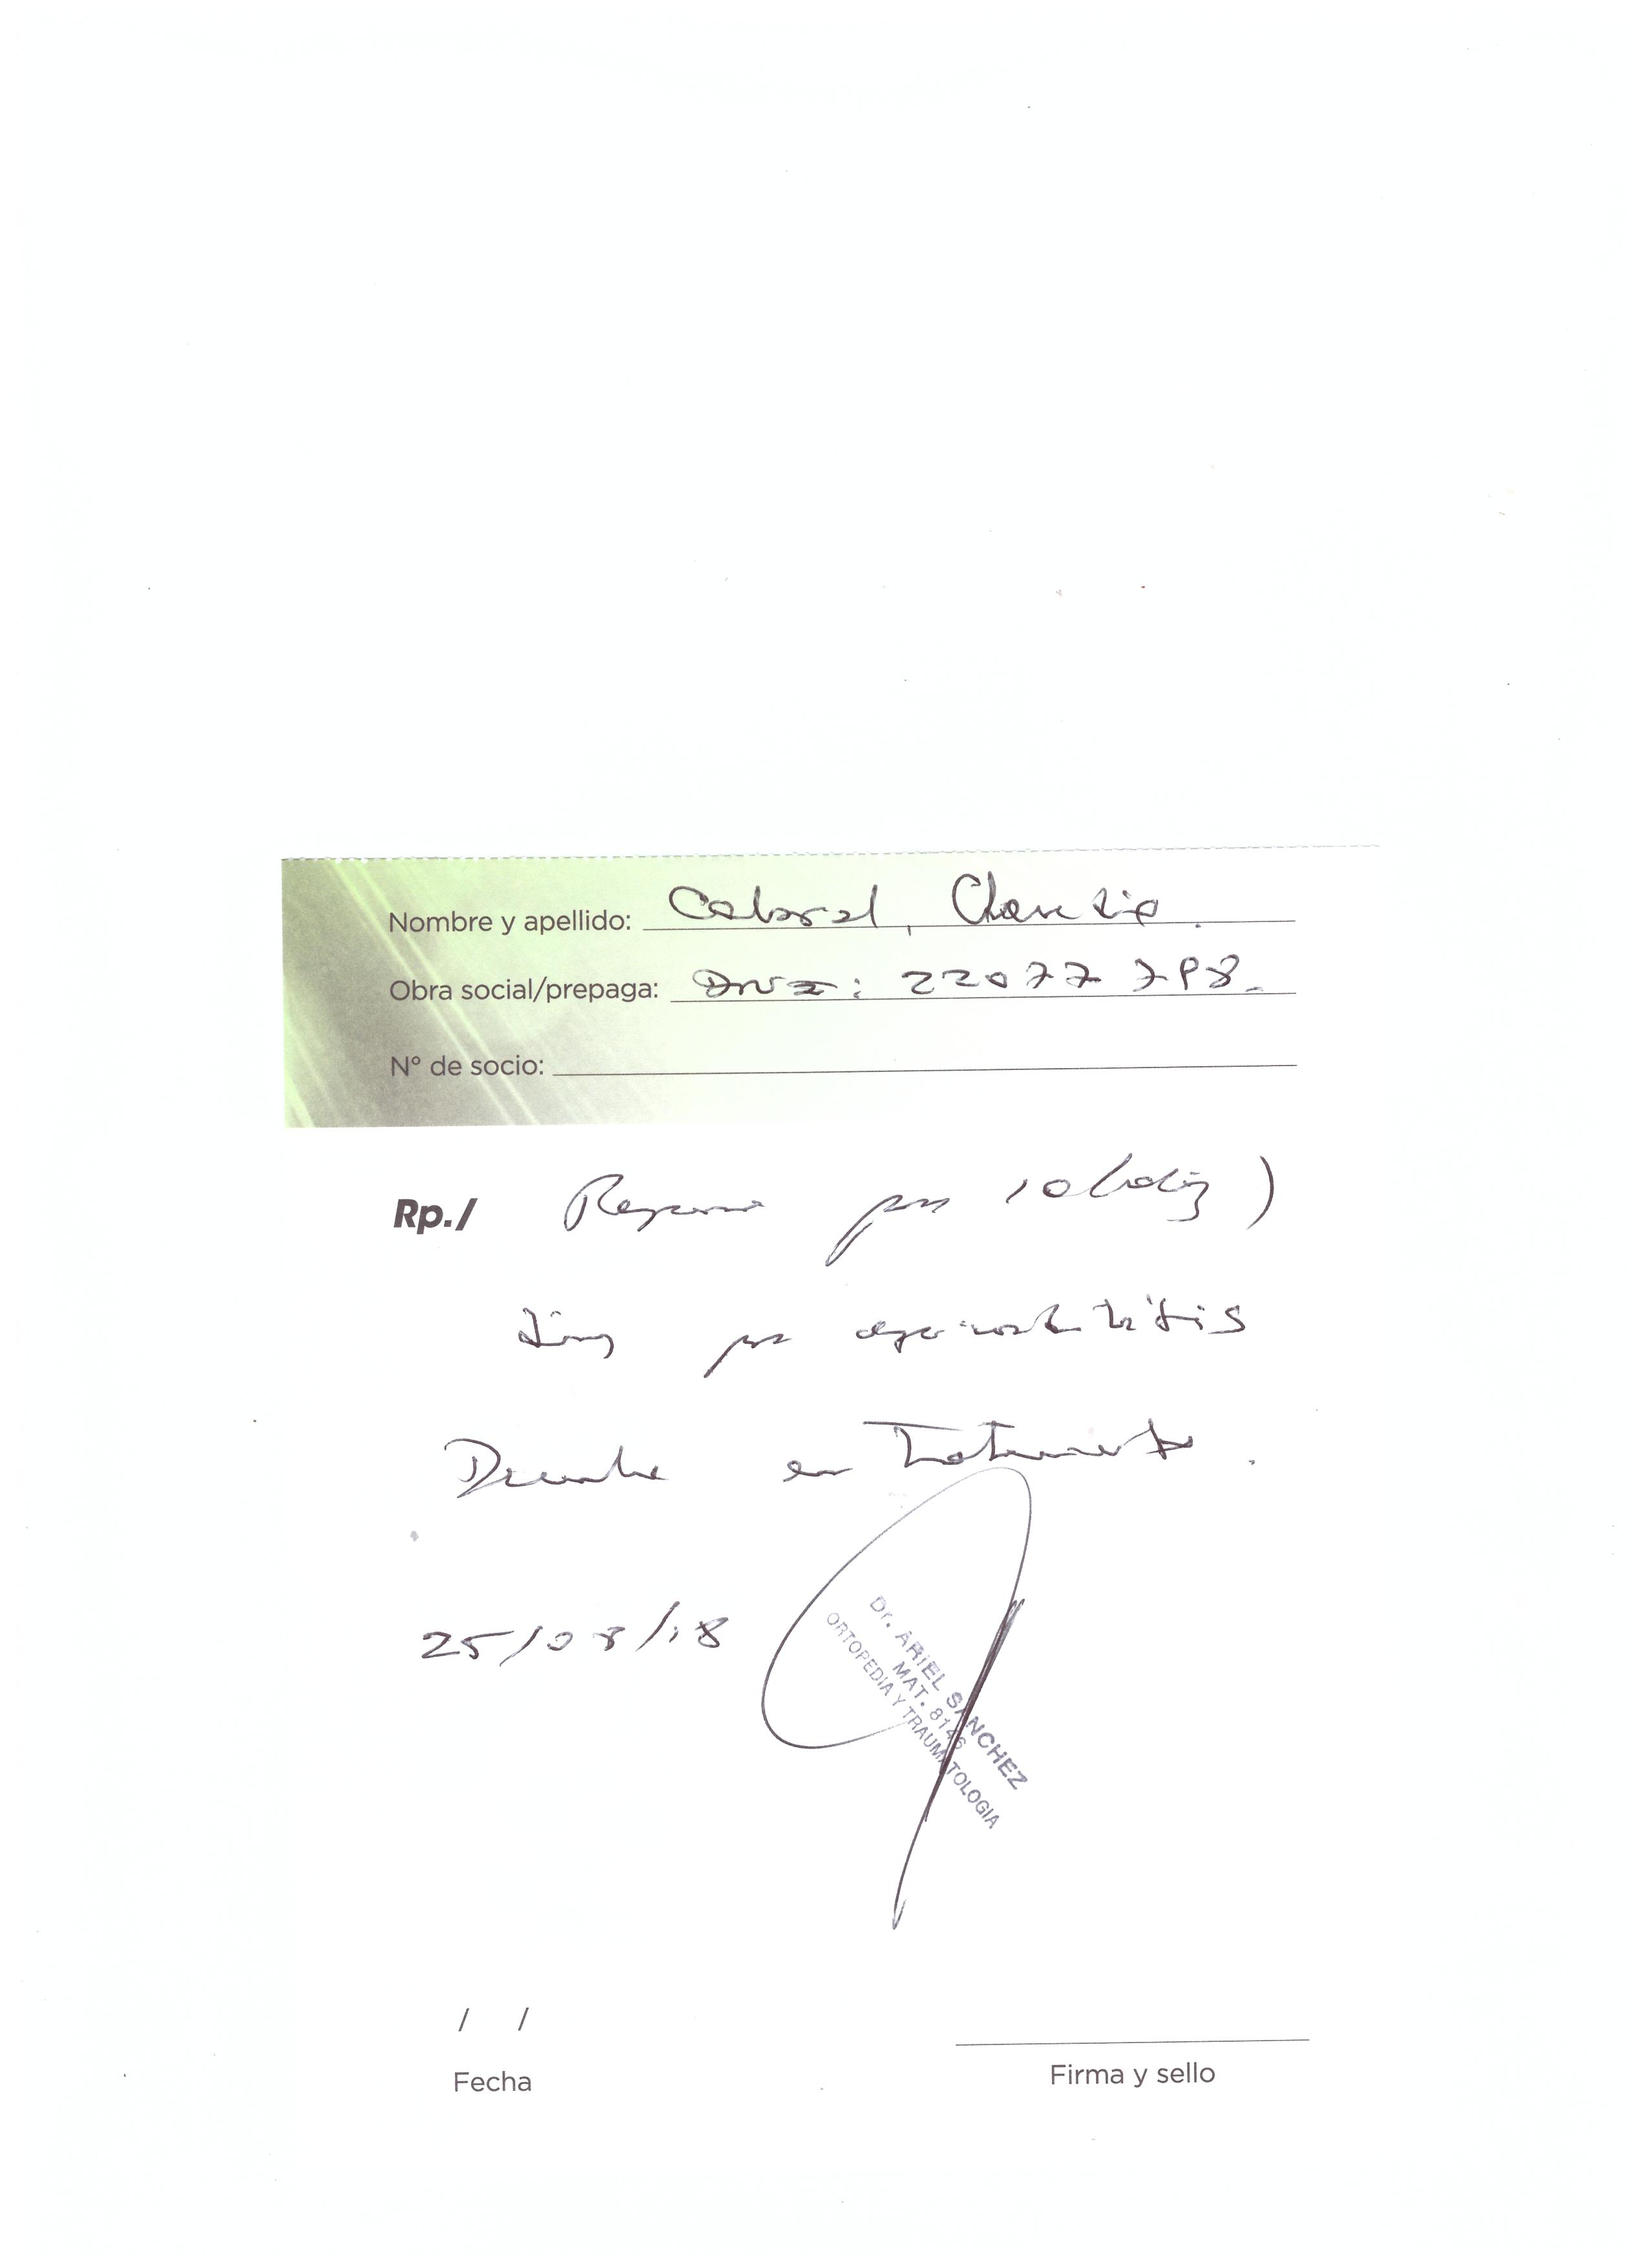 Nombre y apellido: Cabral, Claudia.
Obra social/prepaga: DNI: 22077798.
Nº de socio:
Rp./ Reposo por 10 (diez)
días por
en Tratamiento.
25/08/18
Dr. ARIEL SANCHEZ
MAT. 8146
ORTOPEDIA Y TRAUMATOLOGIA
/ /
Fecha
Firma y sello